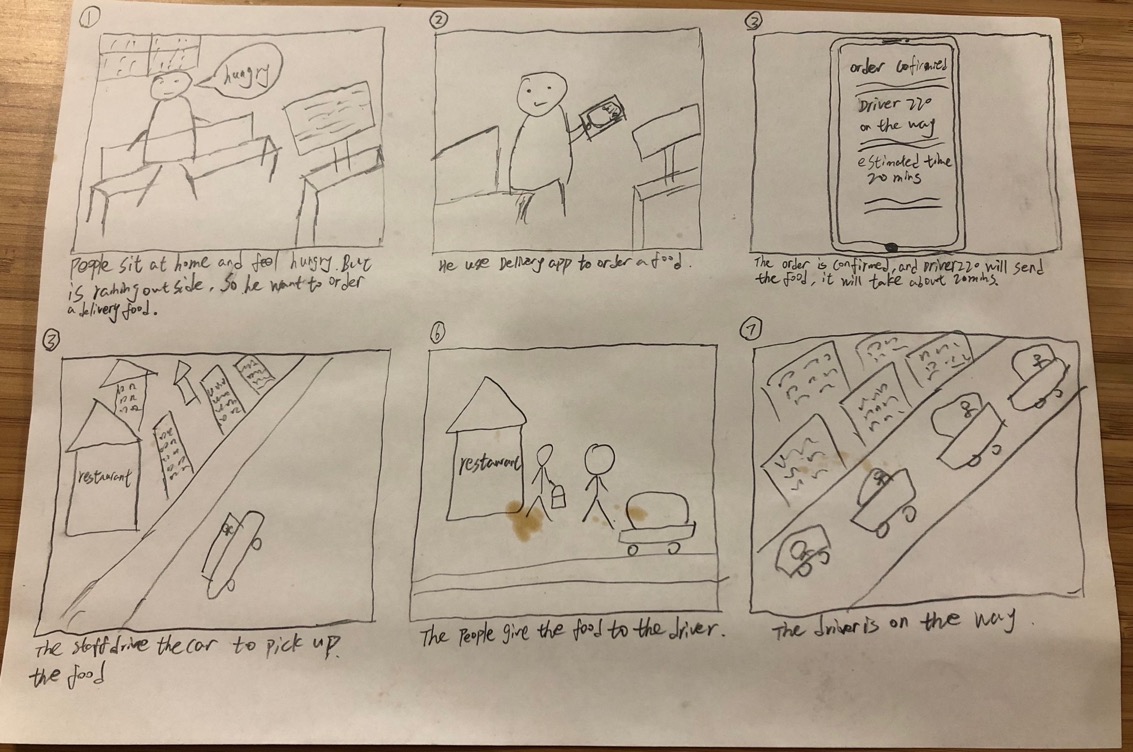 ①
hungry
People sit at home and feel hungry. But
is raining outside, so he want to order
a delivery food.
②
He use Delivery app to order a food.
③
order cofirmied
Driver 220
on the way
estimated time
20 mins
The order is confirmed, and Driver 220 will send
the food, it will take about 20mins.
③
restaurant
The staff drive the car to pick up
the food
⑥
restaurant
The people give the food to the driver.
⑦
The driver is on the way.